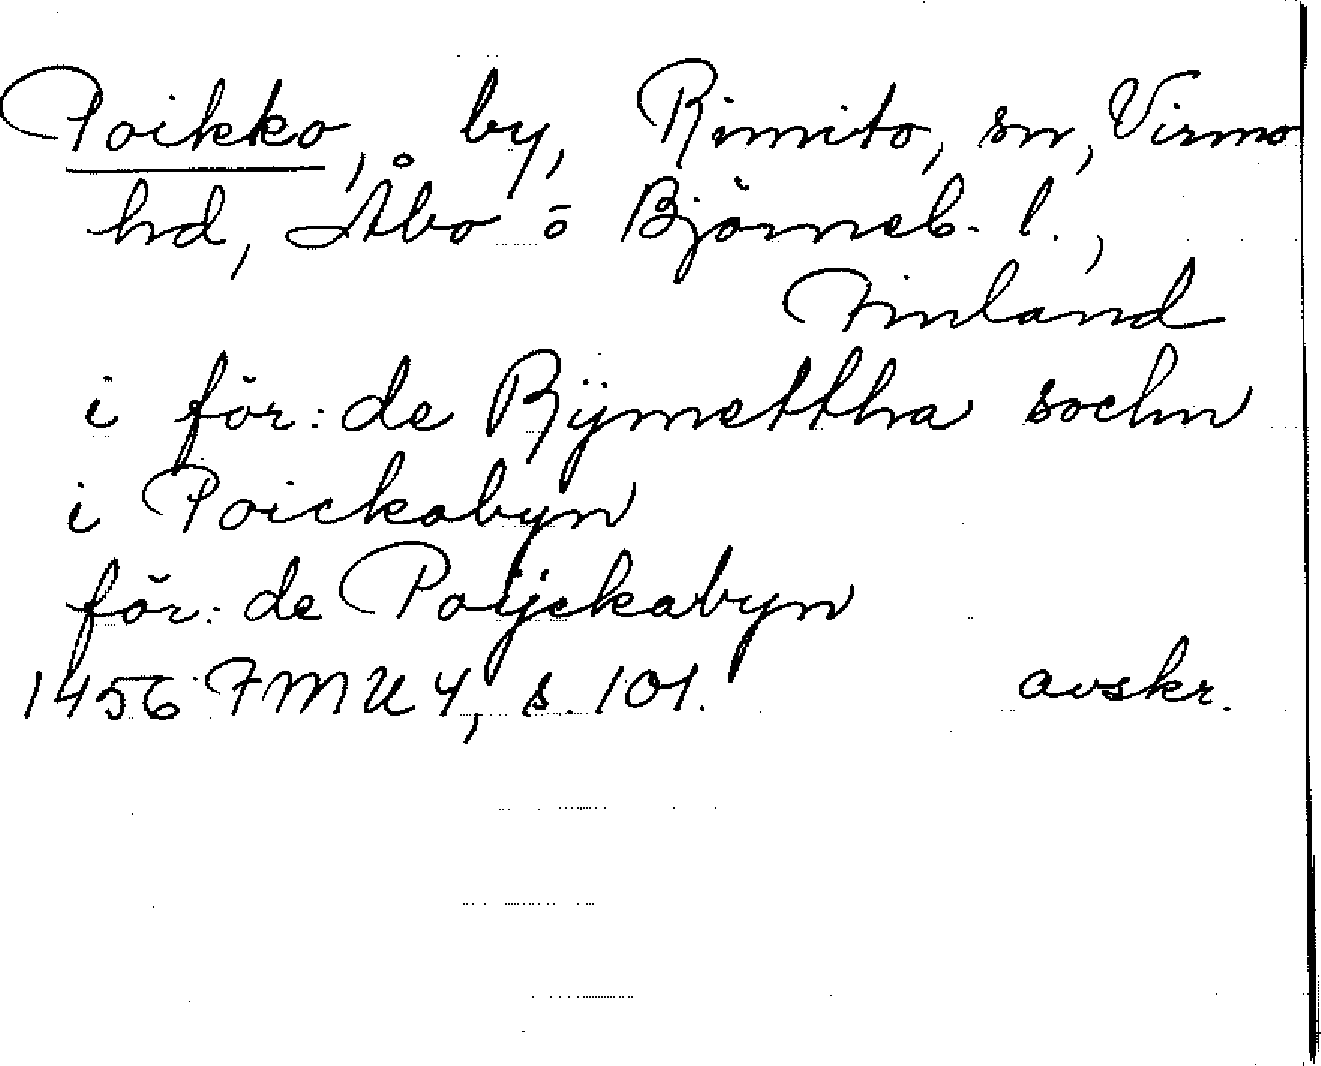 Poikko, by, Rimito, sn, Virmo
hd, Åbo o Björneb. l.,
Finland
i för: de Rÿmettha sochn
i Poickabyn
för: de Poijckabyn
1456 FMU 4, s. 101. avskr.